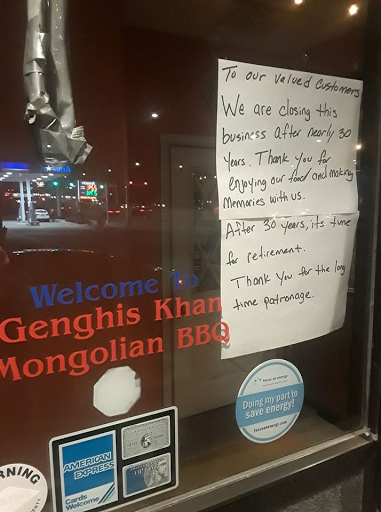 To our valued Customers
We are closing this
business after nearly 30
years. Thank you for
enjoying our food and making
Memories with us.
After 30 years, its time
for retirement.
Thank You for the long
time patronage.
Welcome To
Genghis Khan
Mongolian BBQ
focus on energy
Doing my part to
save energy!
focusonenergy.com
AMERICAN
EXPRESS
Cards
Welcome
RNING